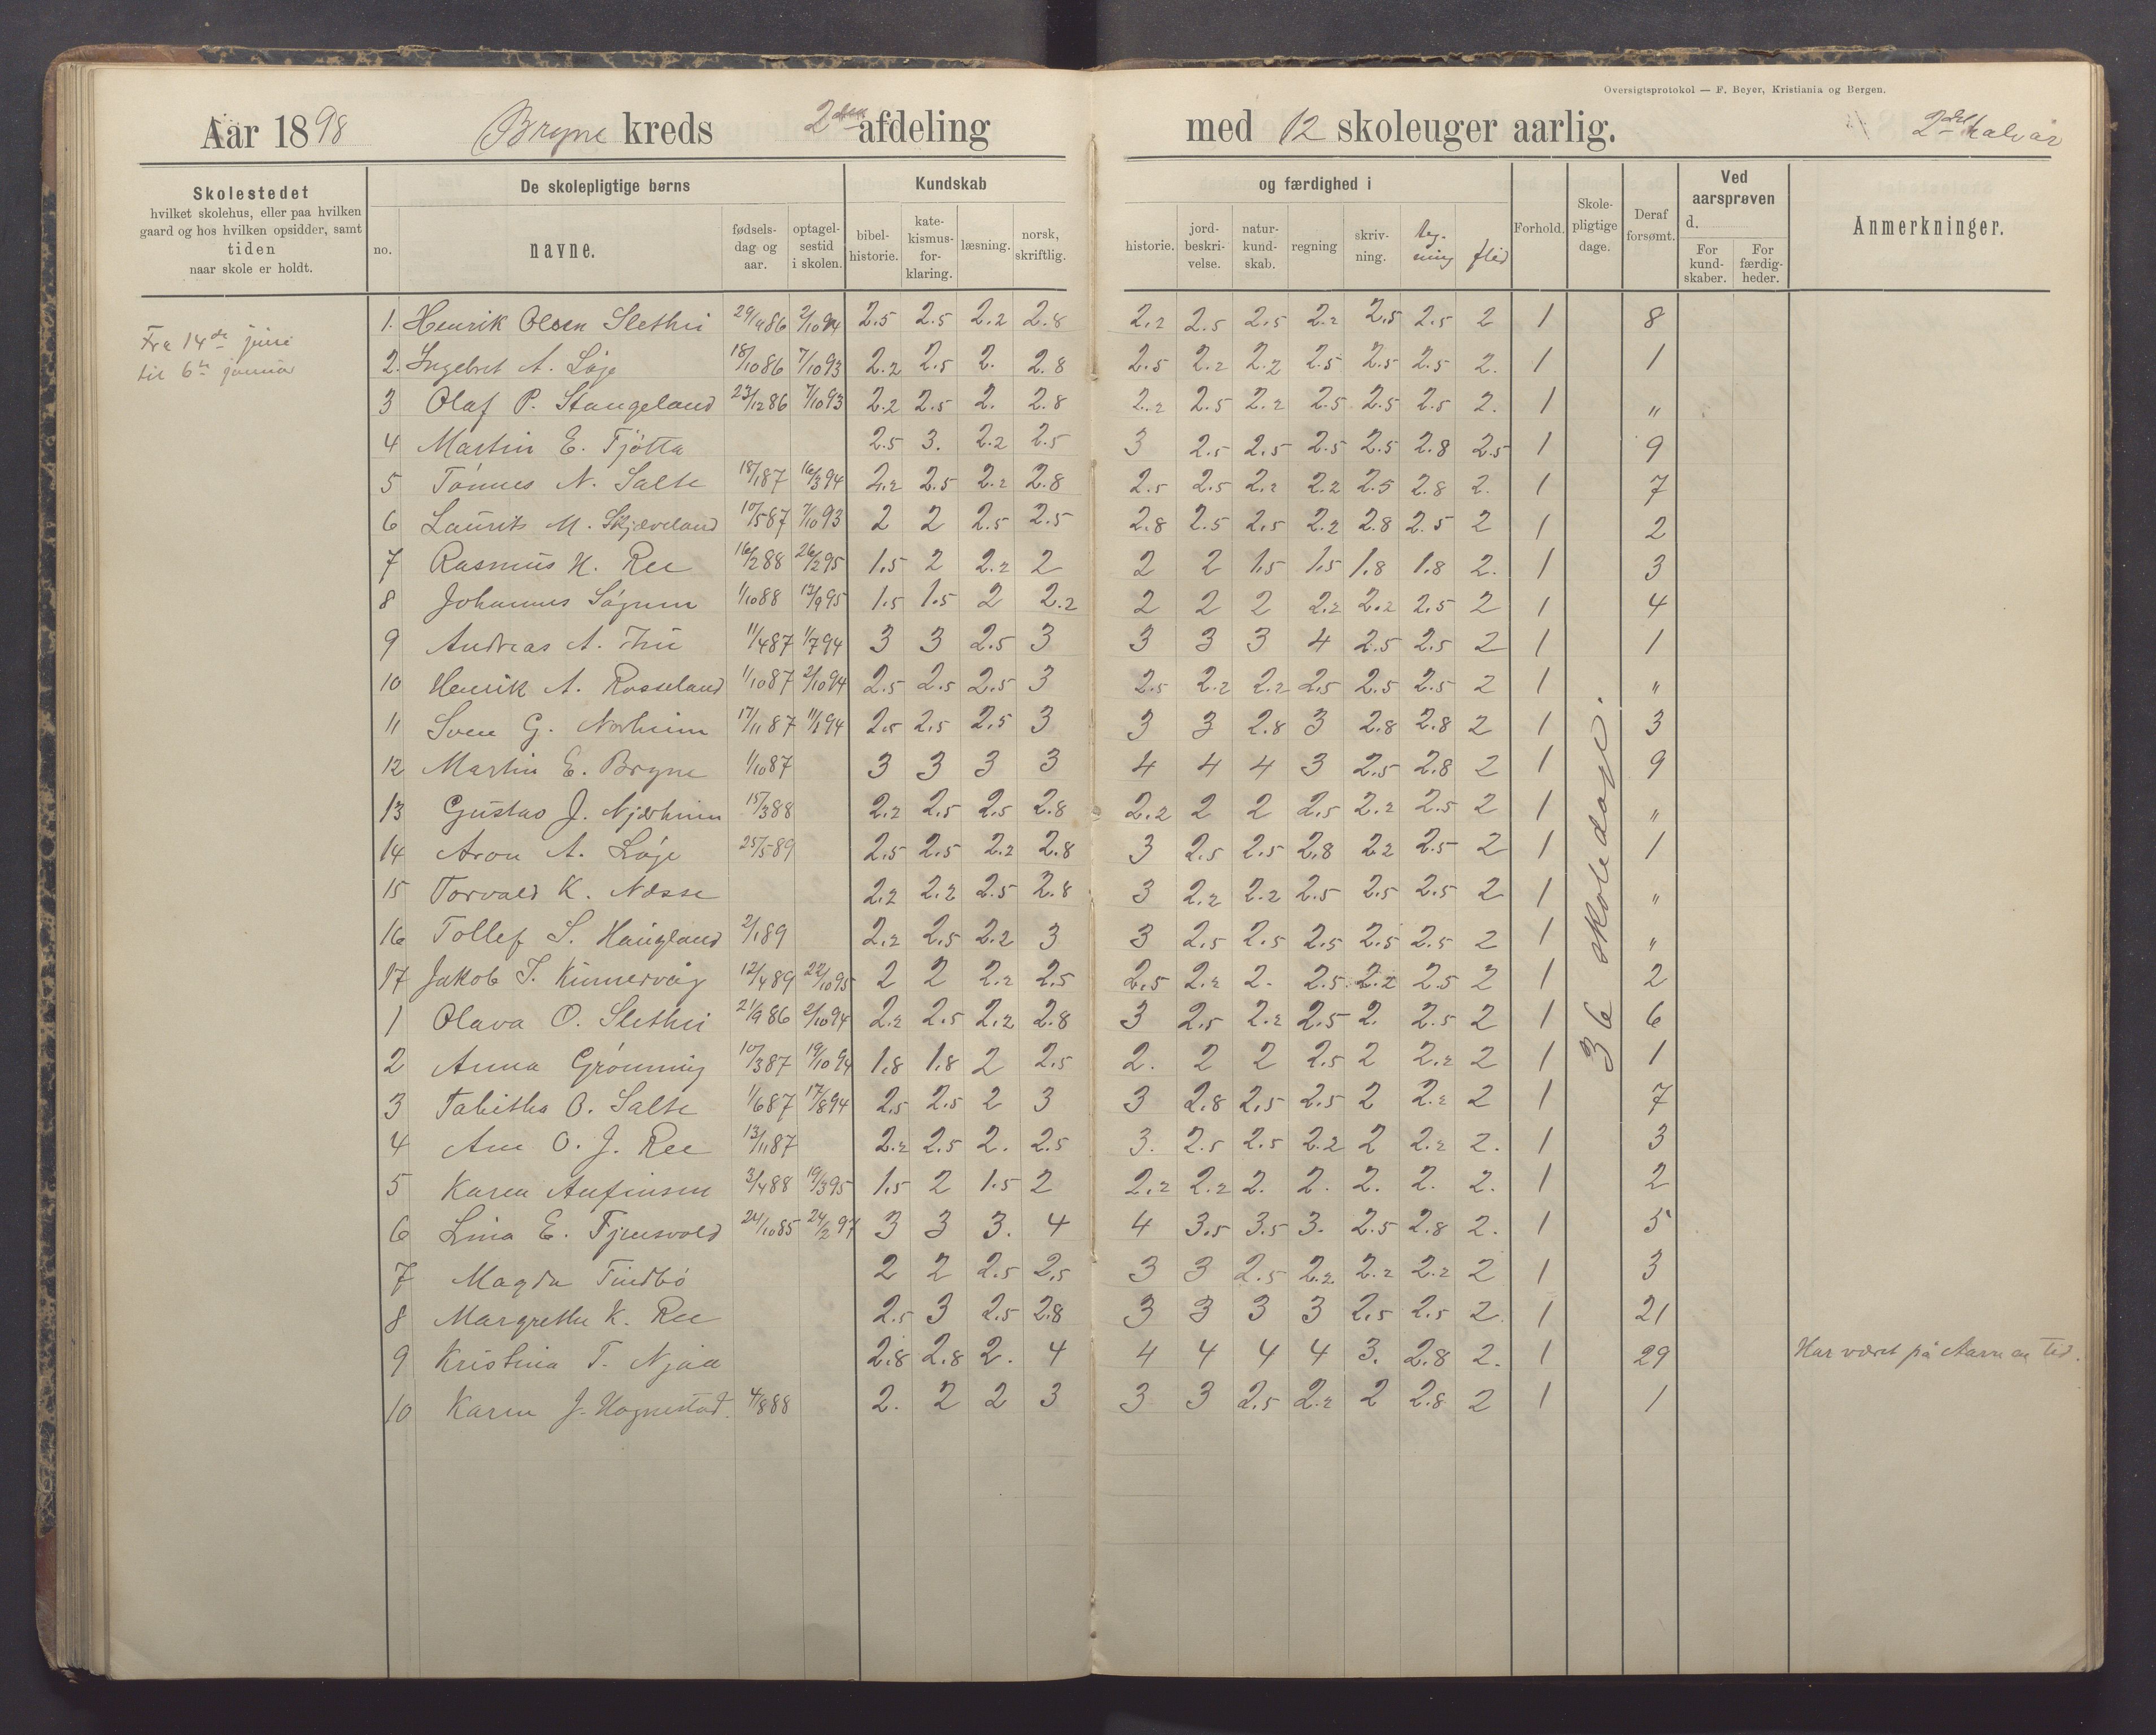 Oversigtsprotokol — F. Beyer, Kristiania og Bergen.
Aar 1898 Bryne kreds 2den afdeling med 12 skoleuger aarlig. 2det halvår
Skolestedet
hvilket skolehus, eller paa hvilken
gaard og hos hvilken opsidder, samt
tiden
naar skole er holdt.
De skolepligtige børns
no.
navne.
fødsels-
dag og
aar.
optagel-
sestid
i skolen.
Kundskab
bibel-
historie.
kate-
kismus-
for-
klaring.
læsning.
norsk,
skriftlig.
og færdighed i
historie.
jord-
beskri-
velse.
natur-
kund-
skab.
regning
skriv-
ning.
teg-
ning
flid
Forhold.
Skole-
pligtige
dage.
Deraf
forsømt.
Ved
aarsprøven
d.
For
kund-
skaber.
For
færdig-
heder.
Anmerkninger.
Fra 14de juni
til 6te januar
36 skoledage.
1. Henrik Olsen Slethei 29/9 86 2/10 94 2.5 2.5 2.2 2.8 2.2 2.5 2.5 2.2 2.5 2.5 2 1 8
2. Ingebret A. Løge 18/10 86 7/10 93 2.2 2.5 2. 2.8 2.5 2.2 2.2 2.5 2.5 2.5 2. 1 1
3 Olaf P. Stangeland 23/12 86 7/10 93 2.2 2.5 2. 2.8 2.2 2.5 2.2 2.5 2.5 2.5 2. 1 "
4 Martin E. Tjøtta 2.5 3. 2.2 2.5 3 2.5 2.5 2.5 2.5 2.8 2.5 1 9
5 Tønnes N. Salte 18/1 87 16/3 94 2.2 2.5 2.2 2.8 2.5 2.5 2.2 2.2 2.5 2.8 2. 1 7
6 Laurits M. Skjæveland 10/5 87 7/10 93 2 2 2.5 2.5 2.8 2.5 2.5 2.2 2.8 2.5 2 1 2
7 Rasmus H. Ree 16/2 88 26/2 95 1.5 2 2.2 2 2 2 1.5 1.5 1.8 1.8 2. 1 3
8 Johannes Søgnen 1/10 88 12/9 95 1.5 1.5 2 2.2 2 2 2 2.2 2.2 2.5 2 1 4
9 Andreas A. Thu 11/4 87 1/7 94 3 3 2.5 3 3 3 3 4 2.5 2.5 2 1 1
10 Henrik A. Rosseland 1/10 87 2/10 94 2.5 2.5 2.5 3 2.5 2.2 2.2 2.5 2.5 2.5 2 1 "
11 Sven G. Norheim 17/11 87 11/1 94 2.5 2.5 2.5 3 3 3 2.8 3 2.8 2.8 2 1 3
12 Martin E. Bryne 1/10 87 3 3 3 3 4 4 4 3 2.5 2.8 2 1 9
13 Gustav J. Njærheim 15/3 88 2.2 2.5 2.5 2.8 2.2 2 2 2.5 2.2 2.5 2 1 "
14 Aron A. Løge 25/5 89 2.5 2.5 2.2 2.8 3 2.5 2.5 2.8 2.2 2.5 2 1 1
15 Torvald K. Næsse 2.2 2.2 2.5 2.8 3 2.2 2.2 2.5 2.5 2.5 2 1 "
16 Tollef S. Haugland 2/1 89 2.2 2.5 2.2 3 3 2.5 2.5 2.5 2.5 2.5 2 1 "
17 Jakob T. Kinnervåg 12/4 89 22/10 95 2 2 2.2 2.5 2.5 2.2 2. 2.5 2.2 2.5 2 1 2
1 Olava O. Slethei 21/9 86 2/10 94 2.2 2.5 2.2 2.8 3 2.5 2.2 2.5 2. 2.5 2 1 6
2 Anna Grønning 10/3 87 19/10 94 1.8 1.8 2 2.5 2. 2 2 2.5 2 2.2 2 1 1
3 Tabitha O. Salte 1/6 87 17/8 94 2.5 2.5 2 3 3 2.8 2.5 2.5 2 2.2 2 1 7
4 Ane O. J. Ree 13/11 87 2.2 2.5 2. 2.5 3. 2.5 2.5 2.2 2 2.2 2. 1 3
5 Karen Anfinsen 3/4 88 19/3 95 1.5 2 1.5 2 2.2 2.2 2. 2. 2. 2. 2. 1 2
6 Lina E. Tjensvold 24/10 85 24/2 97 3 3 3. 4 4 3.5 3.5 3. 2.5 2.8 2. 1 5
7 Magda Tindbø 2 2 2.5 2.5 3 3 2.5 2.2 2.2 2.2 2 1 3
8 Margrethe K. Ree 2.5 3 2.5 2.8 3 3 3 3 2.5 2.5 2. 1 21
9 Kristina T. Njaa 2.8 2.8 2. 4 4 4 4 4 3. 2.8 2. 1 29 Har været på en tid.
10 Karen J. Hognestad. 4/8 88 2. 2 2 3 3 3 2.5 2.2 2 2.8 2 1 1